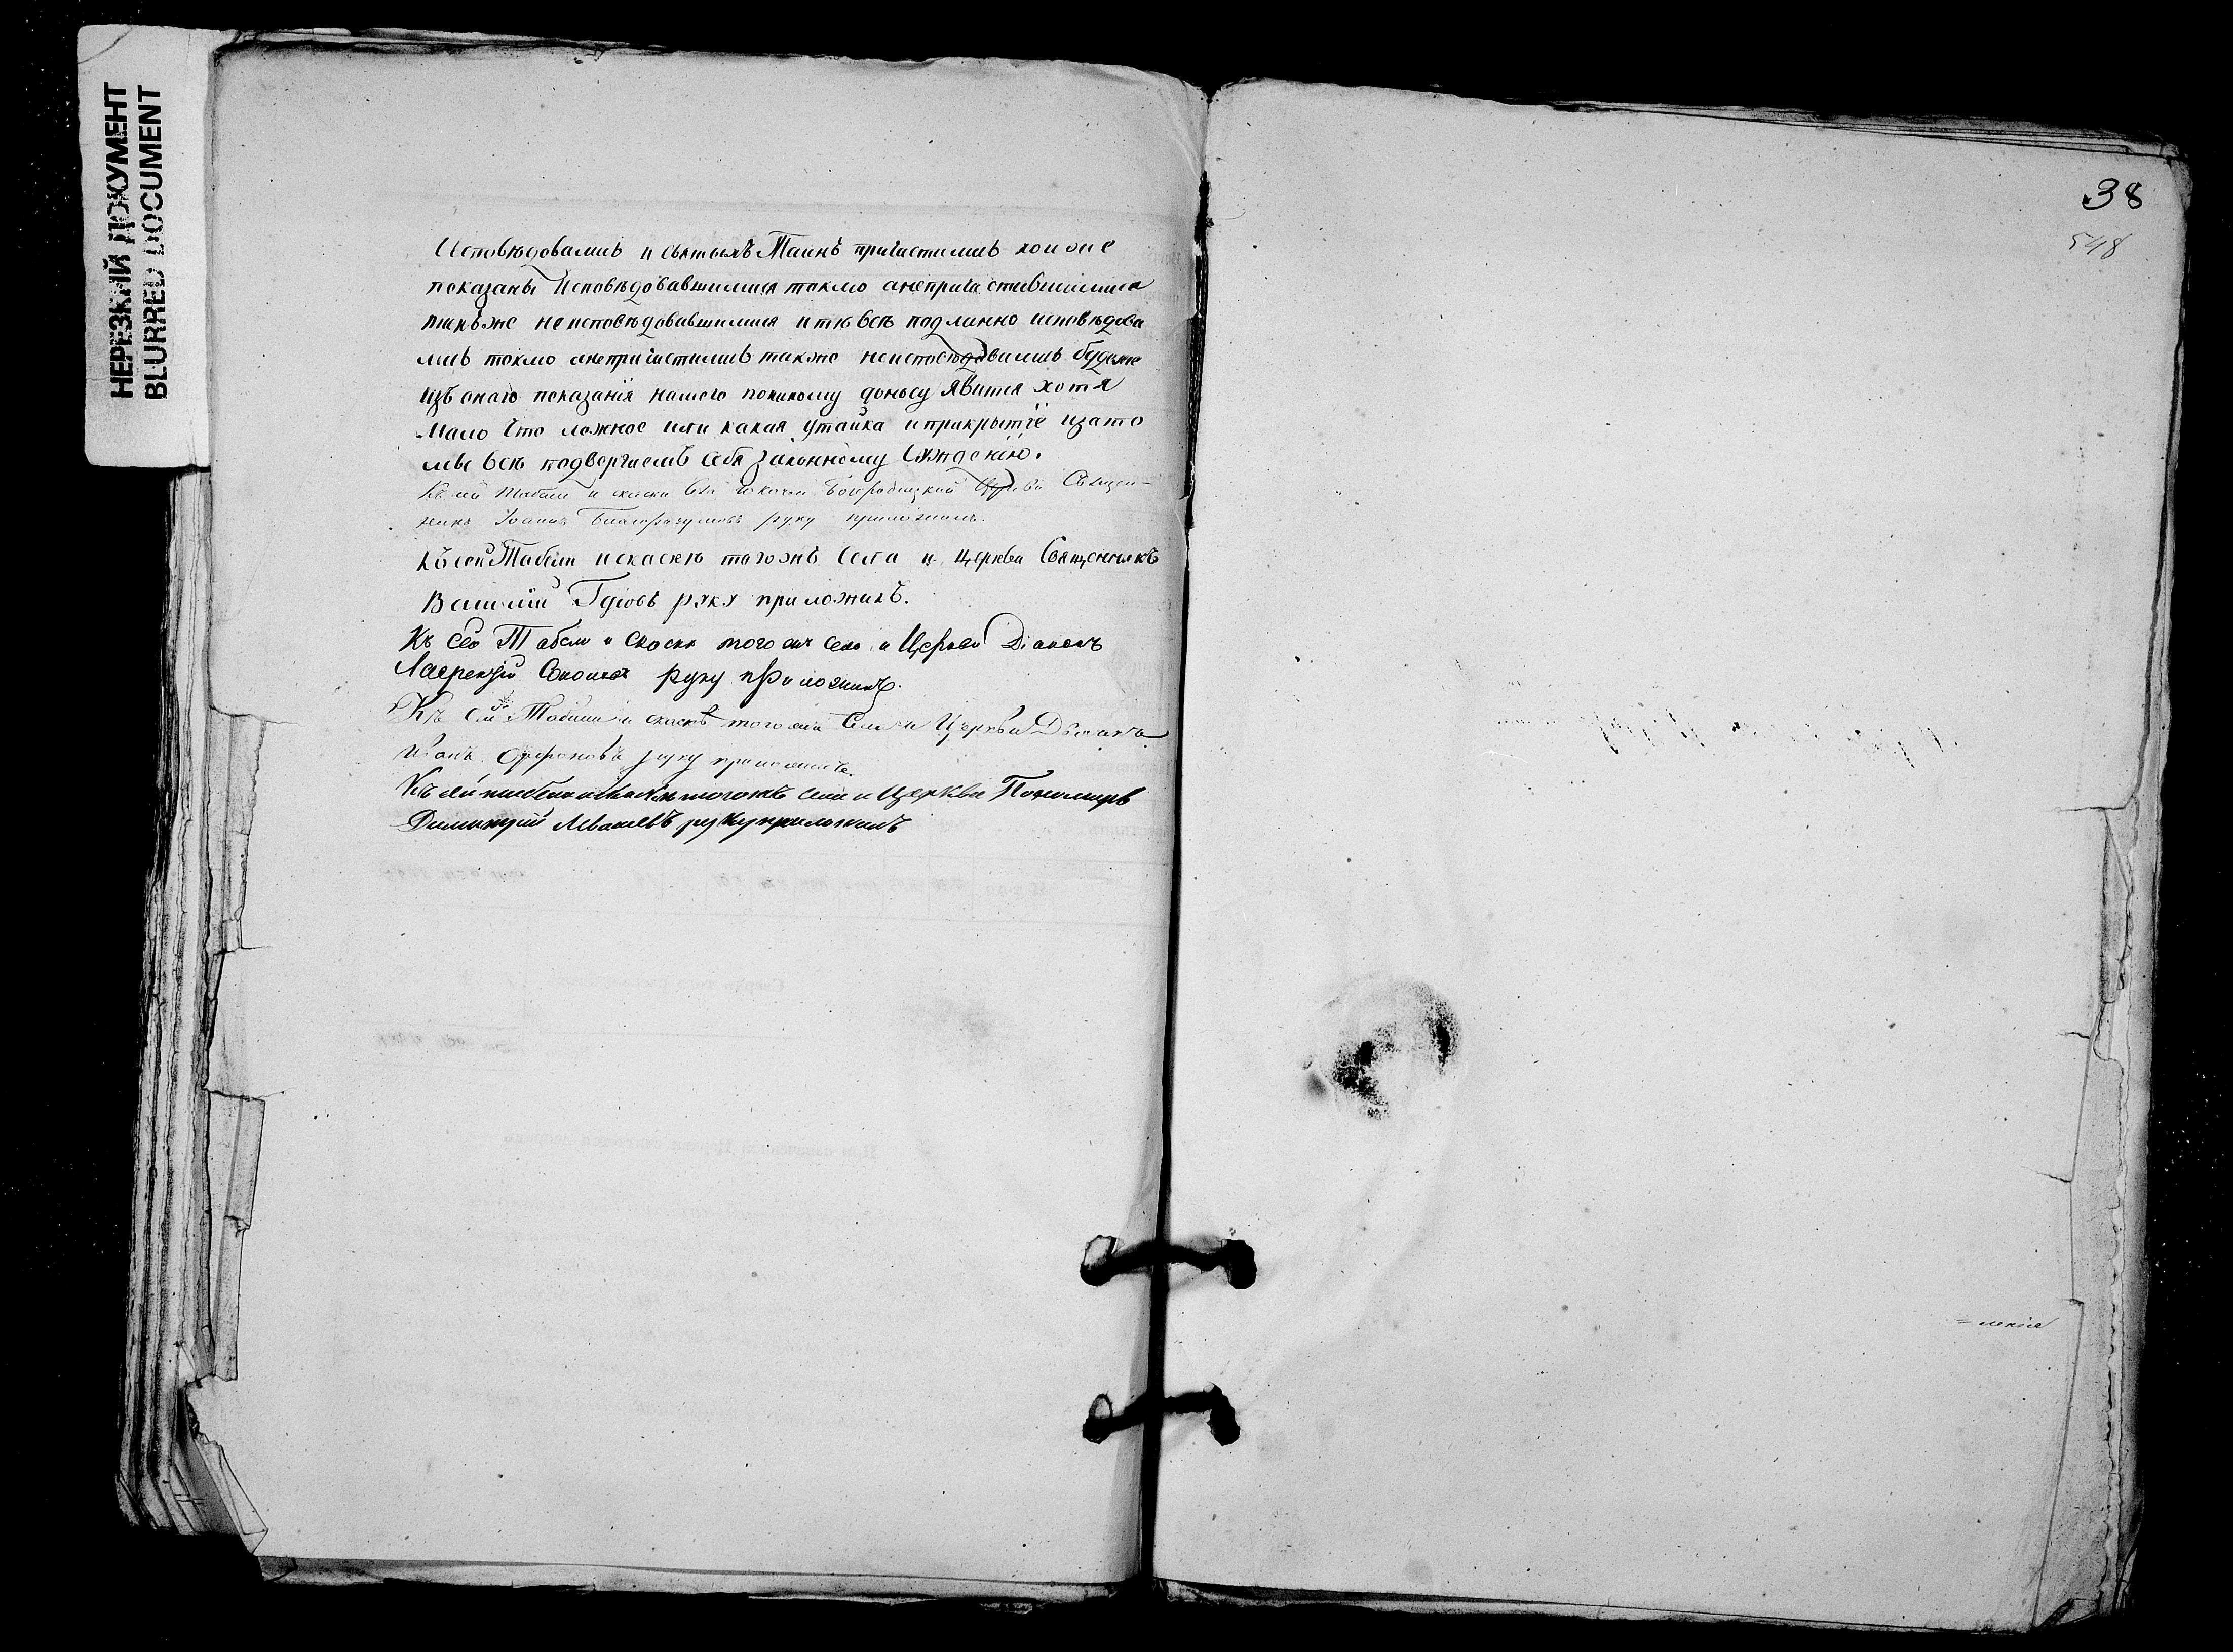 НЕРЕЗКИЙ ДОКУМЕНТ
BLURRED DOCUMENT
Исповѣдовались и святыхъ Таинъ причастились кои же
показаны Исповѣдовавшимися токмо анепричастившимися
инѣже неисповѣдовавшимися итѣ всѣ подлинно исповѣдова
лись токмо анепричастились также неисповѣдовались будеже
изъ онаго показанія нашего поникому доносу явится хотя
мало что ложное или какая утайка иприкрытіе изато
мы всѣ подвергаемъ себя законному сужденію.
Къ сей табели и скаски села Богородицкой Церкви Священ-
никъ Іоаннъ руку приложилъ.
Къ сей Табели искаскѣ тогожъ села и церкви Священникъ
Василій руку приложилъ.
Къ сей Табели и скаски тогожъ села и Церкви Діаконъ
Лаврентій руку приложилъ.
Къ сей Табели и скаскѣ тогожъ Села и Церкви Дьячекъ
Иванъ руку приложилъ.
Къ сей табели искаски тогожъ села и Церкви Пономарь
Димитрій руку приложилъ
38
548